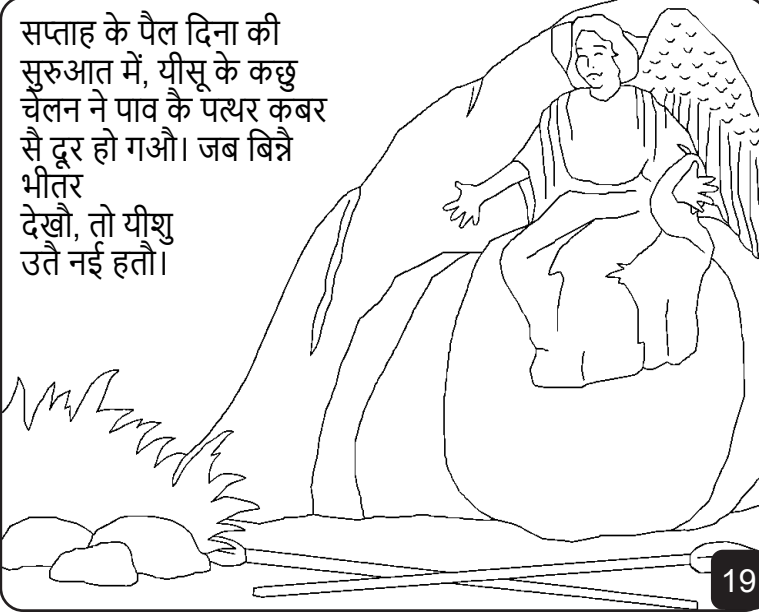 सप्ताह के पैल दिना की
सुरुआत में, यीसू के कछु
चेलन ने पाव कै पत्थर कबर
सै दूर हो गऔ। जब बिन्नै
भीतर
देखौ, तो यीशु
उतै नई हतौ।
19